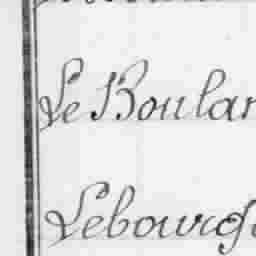 Le Boular
Lebourg